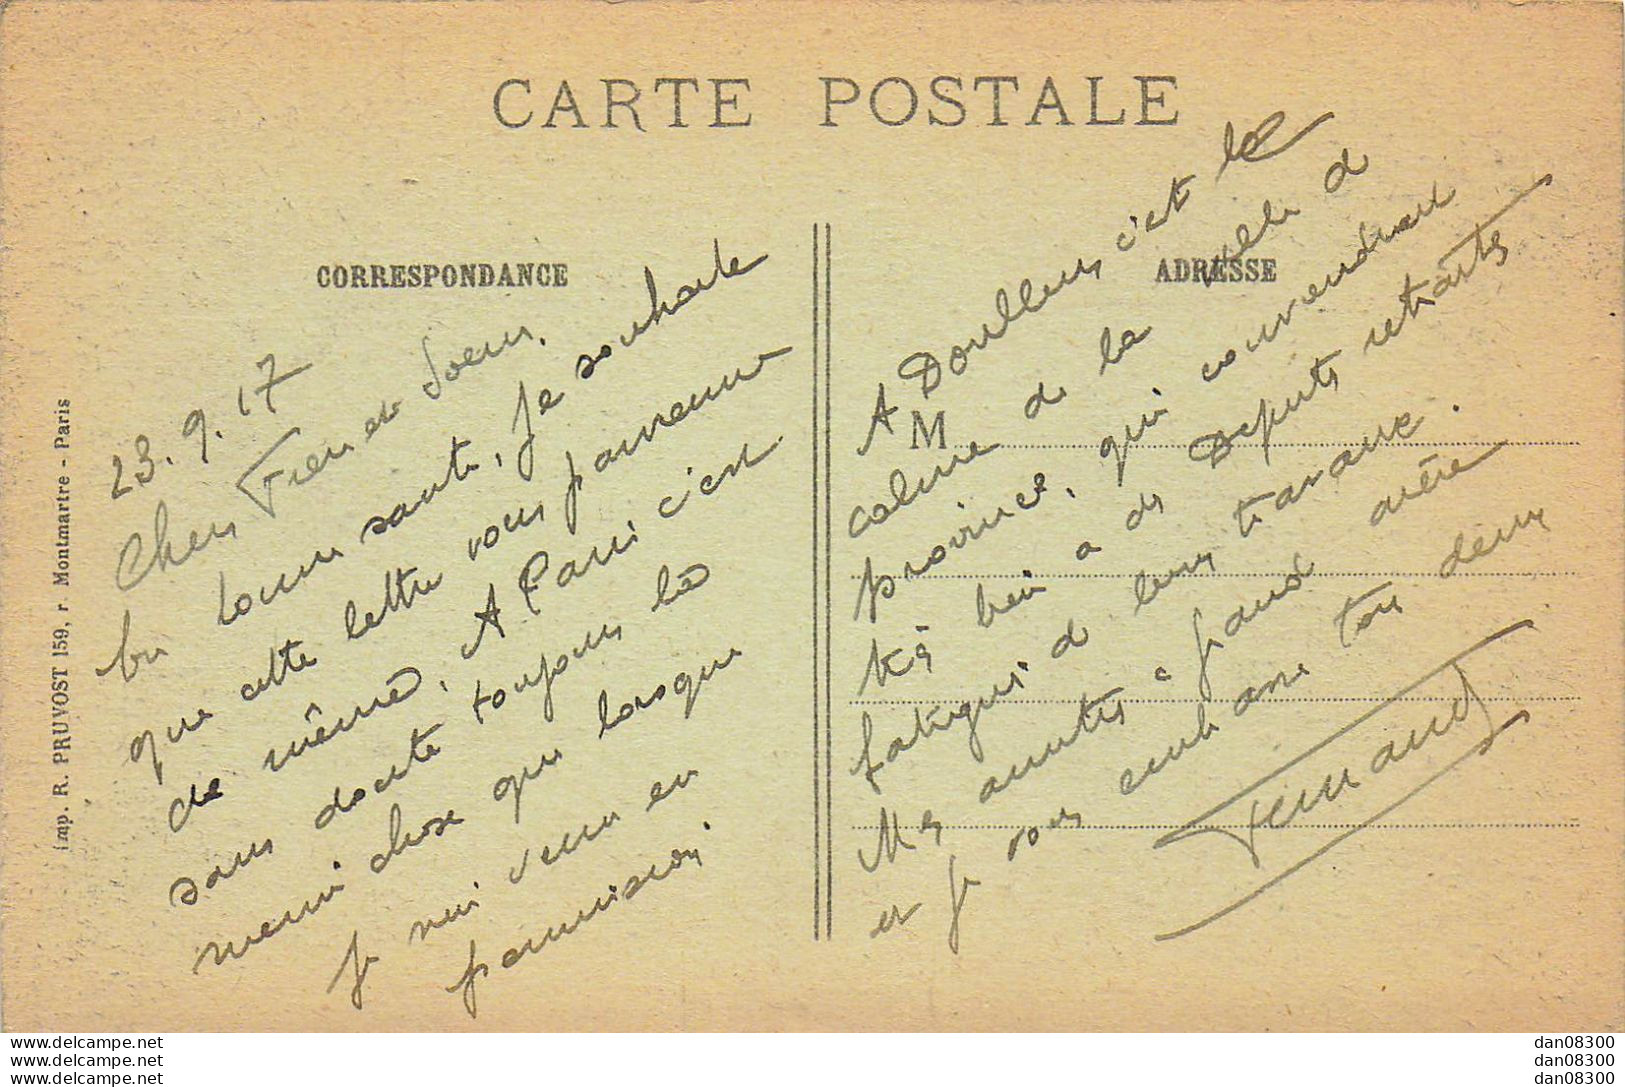 CARTE POSTALE
CORRESPONDANCE
ADRESSE
M
Imp. R. PRUVOST 159, r. Montmartre - Paris
23.9.17
Chers Frère et Soeur,
En bonne santé, je souhaite
que cette lettre vous parvienne
de même. A Paris c'est
sans doute toujours la
même chose que lorsque
je suis venu en
permission.
A Doullens c'est le
calme de la ville de
province, qui conviendrait
très bien à des Députés
fatigués de leurs travaux.
Mes amitiés à grand mère
et je vous embrasse tous deux
Fernand
www.delcampe.net
www.delcampe.net
www.delcampe.net
dan08300
dan08300
dan08300